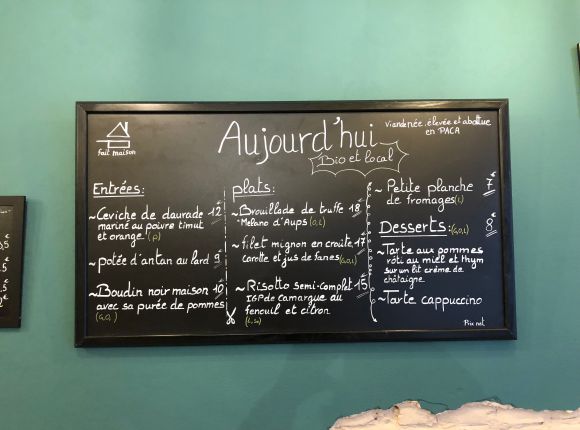 fait maison
Aujourd'hui
Bio et local
Viande née, élevée et abattue
en PACA
Entrées:
~Ceviche de daurade 12€
mariné au poivre timut
et orange (p)
~potée d'antan au lard 9€
~Boudin noir maison 10€
avec sa purée de pommes
plats:
~Brouillade de truffe 18€
Melano d'Aups (o,l)
~filet mignon en croûte 17€
Carotte et jus de fanes
~Risotto semi-complet 15€
IGP de camargue au
fenouil et citron
~ Petite planche 7€
de fromages (l)
Desserts: (g,o,l) 8€
~Tarte aux pommes
rôti au miel et thym
sur un lit crème de
châtaigne
~Tarte cappuccino
Prix net